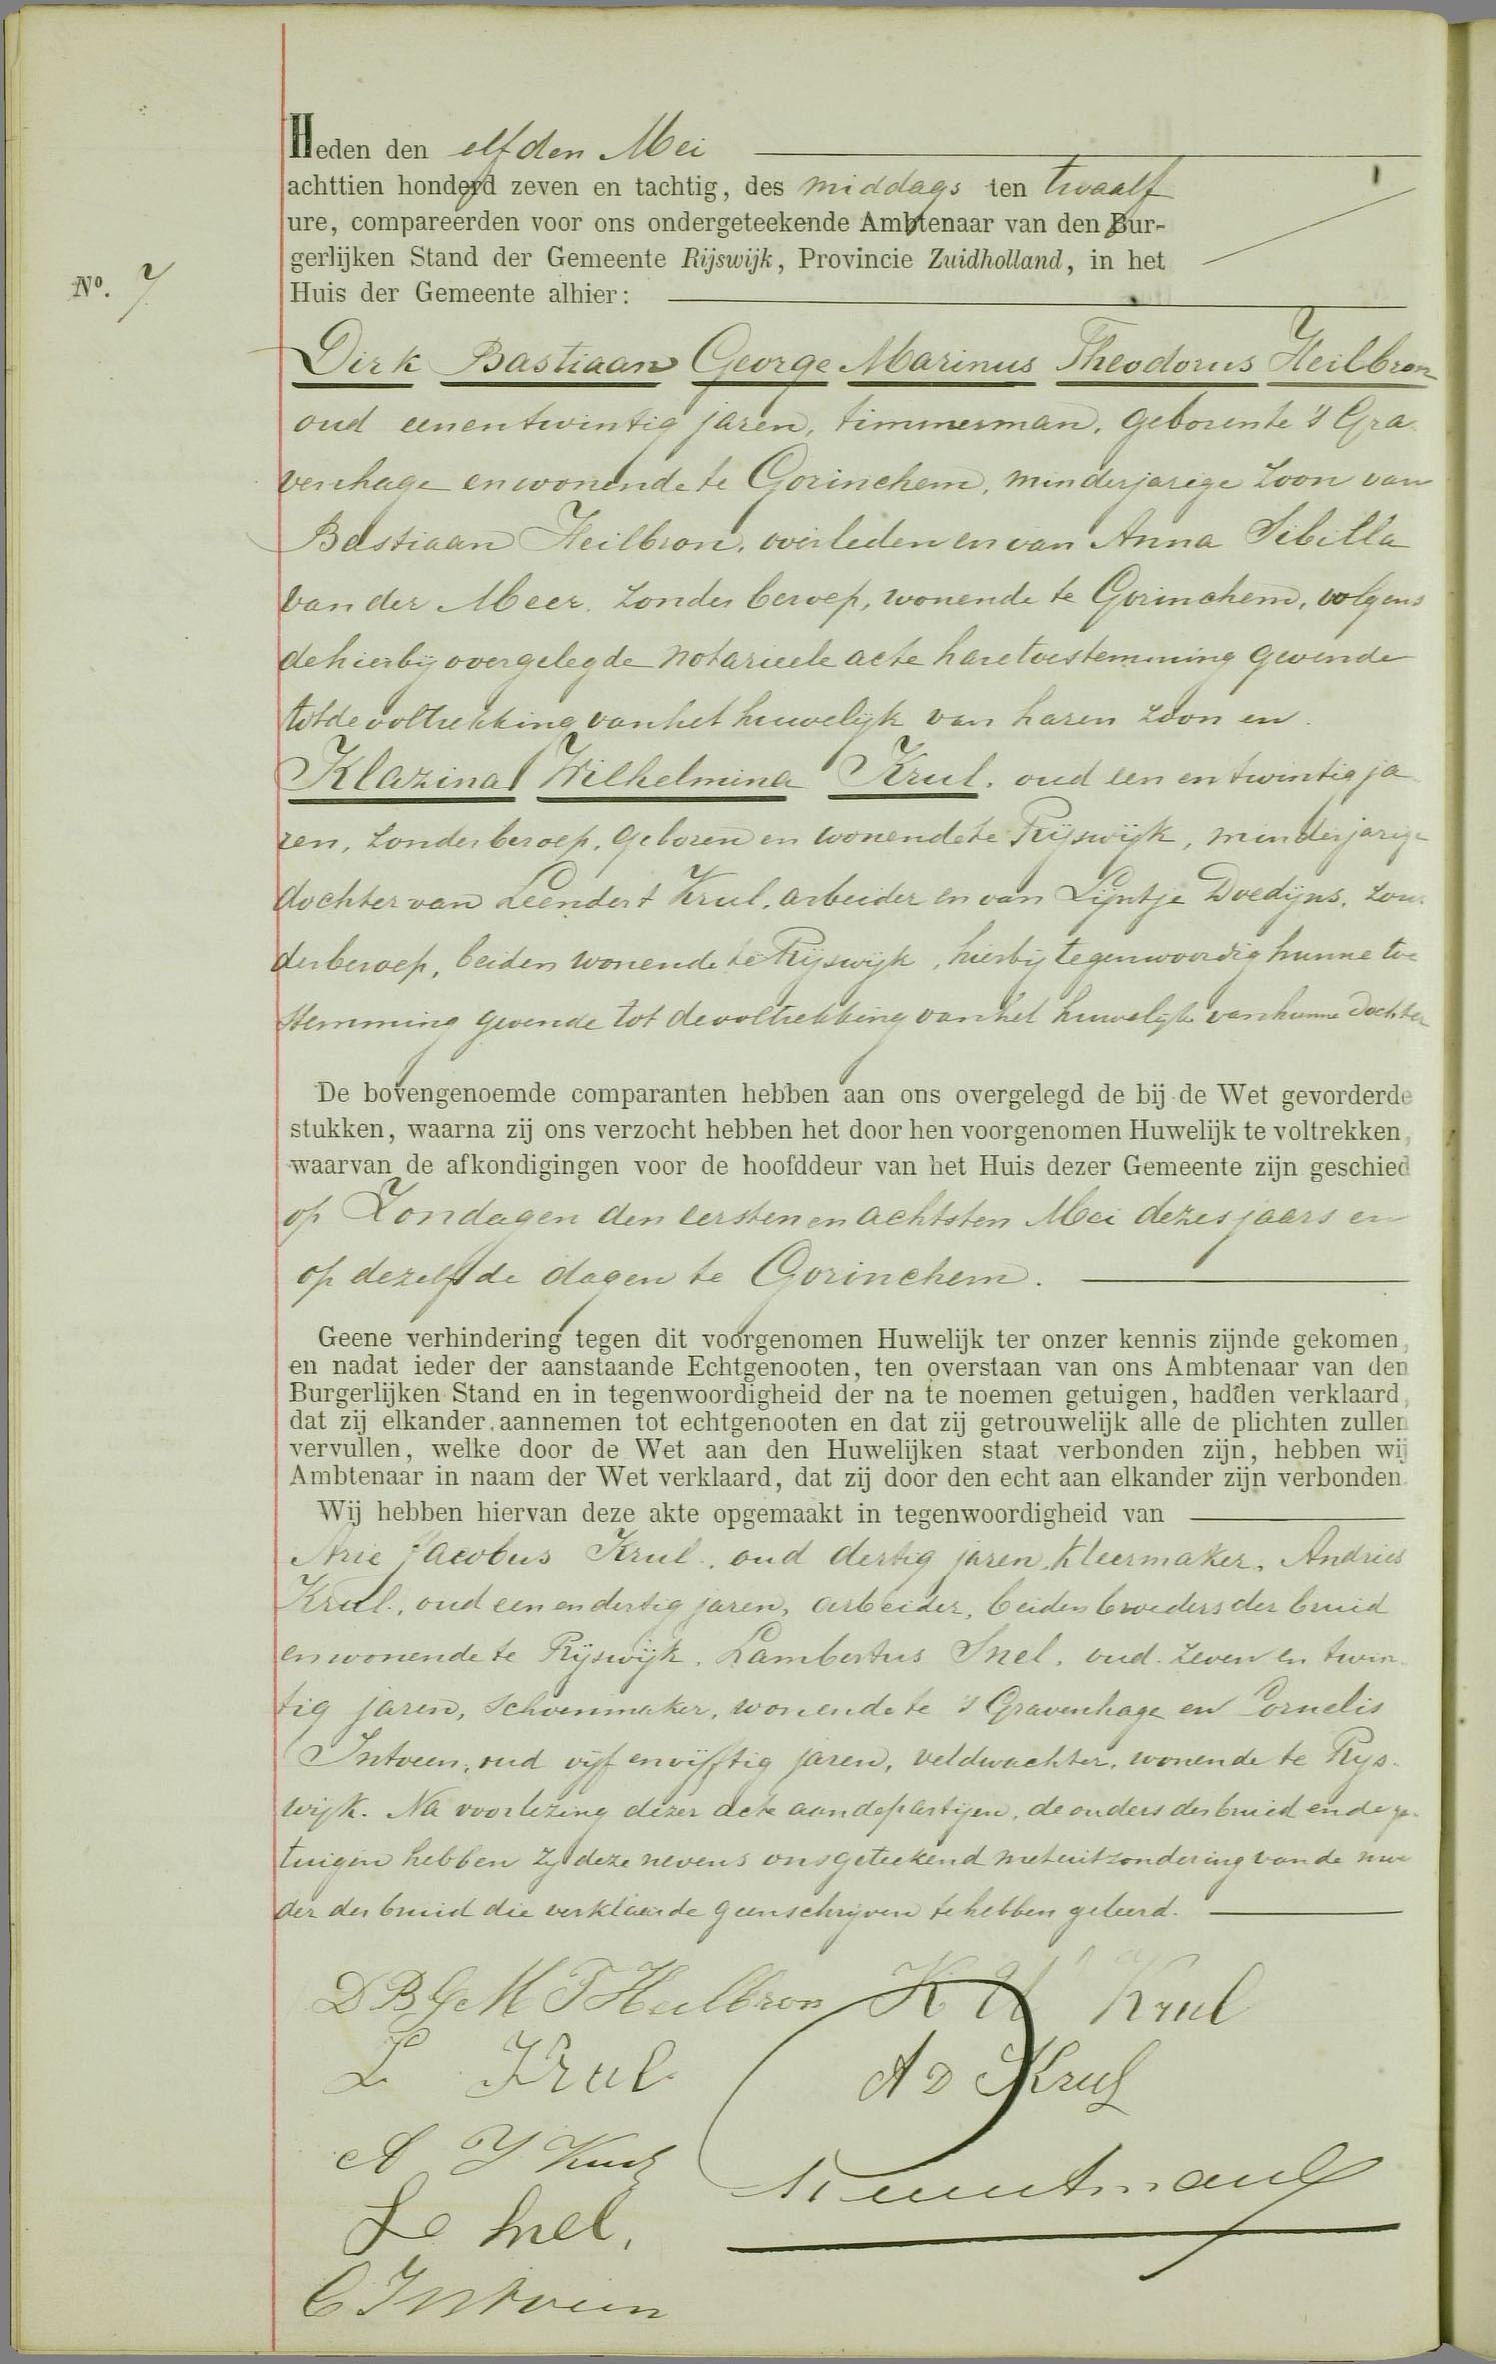 Heden den elfden Mei
achttien honderd zeven en tachtig, des middags ten twaalf
ure, compareerden voor ons ondergeteekende Ambtenaar van den Bur-
gerlijken Stand der Gemeente Rijswijk, Provincie Zuidholland, in het
No. 7
Huis der Gemeente alhier:
Dirk Bastiaan George Marinus Theodorus Heilbron
oud eenentwintig jaren, timmerman, geboren te 's Gra-
venhage en wonende te Gorinchem, minderjarige zoon van
Bastiaan Heilbron, overleden en van Anna Sibilla
van der Meer, zonder beroep, wonende te Gorinchem, volgens
de hierbij overgelegde notarieele acte hare toestemming gevende
tot de voltrekking van het huwelijk van haren zoon en
Klazina Wilhelmina Krul, oud een en twintig ja
ren, zonder beroep, geboren en wonende te Rijswijk, minderjarige
dochter van Leendert Krul, arbeider en van Lijntje Doedijns, zon-
der beroep, beiden wonende te Rijswijk, hierbij tegenwoordig hunne toe
stemming gevende tot de voltrekking van het huwelijk van hunne dochter
De bovengenoemde comparanten hebben aan ons overgelegd de bij de Wet gevorderde
stukken, waarna zij ons verzocht hebben het door hen voorgenomen Huwelijk te voltrekken,
waarvan de afkondigingen voor de hoofddeur van het Huis dezer Gemeente zijn geschied
op Zondagen den eersten en achtsten Mei dezes jaars en
op dezelfde dagen te Gorinchem.
Geene verhindering tegen dit voorgenomen Huwelijk ter onzer kennis zijnde gekomen,
en nadat ieder der aanstaande Echtgenooten, ten overstaan van ons Ambtenaar van den
Burgerlijken Stand en in tegenwoordigheid der na te noemen getuigen, hadden verklaard,
dat zij elkander aannemen tot echtgenooten en dat zij getrouwelijk alle de plichten zullen
vervullen, welke door de Wet aan den Huwelijken staat verbonden zijn, hebben wij
Ambtenaar in naam der Wet verklaard, dat zij door den echt aan elkander zijn verbonden.
Wij hebben hiervan deze akte opgemaakt in tegenwoordigheid van
Arie Jacobus Krul, oud dertig jaren, kleermaker, Andries
Krul, oud een en dertig jaren, arbeider, beiden broeders der bruid
en wonende te Rijswijk, Lambertus Snel, oud zeven en twin-
tig jaren, schoenmaker, wonende te 's Gravenhage en Cornelis
Intveen, oud vijf en vijftig jaren, veldwachter, wonende te Rijs-
wijk. Na voorlezing dezer acte aan de partijen, de ouders der bruid en de ge-
tuigen hebben zij deze nevens ons geteekend met uitzondering van de moe
der der bruid die verklaarde geen schrijven te hebben geleerd.
D B G M T Heilbron K W Krul
L Krul
AD Krul
A J Krul
L Snel,
C Intveen